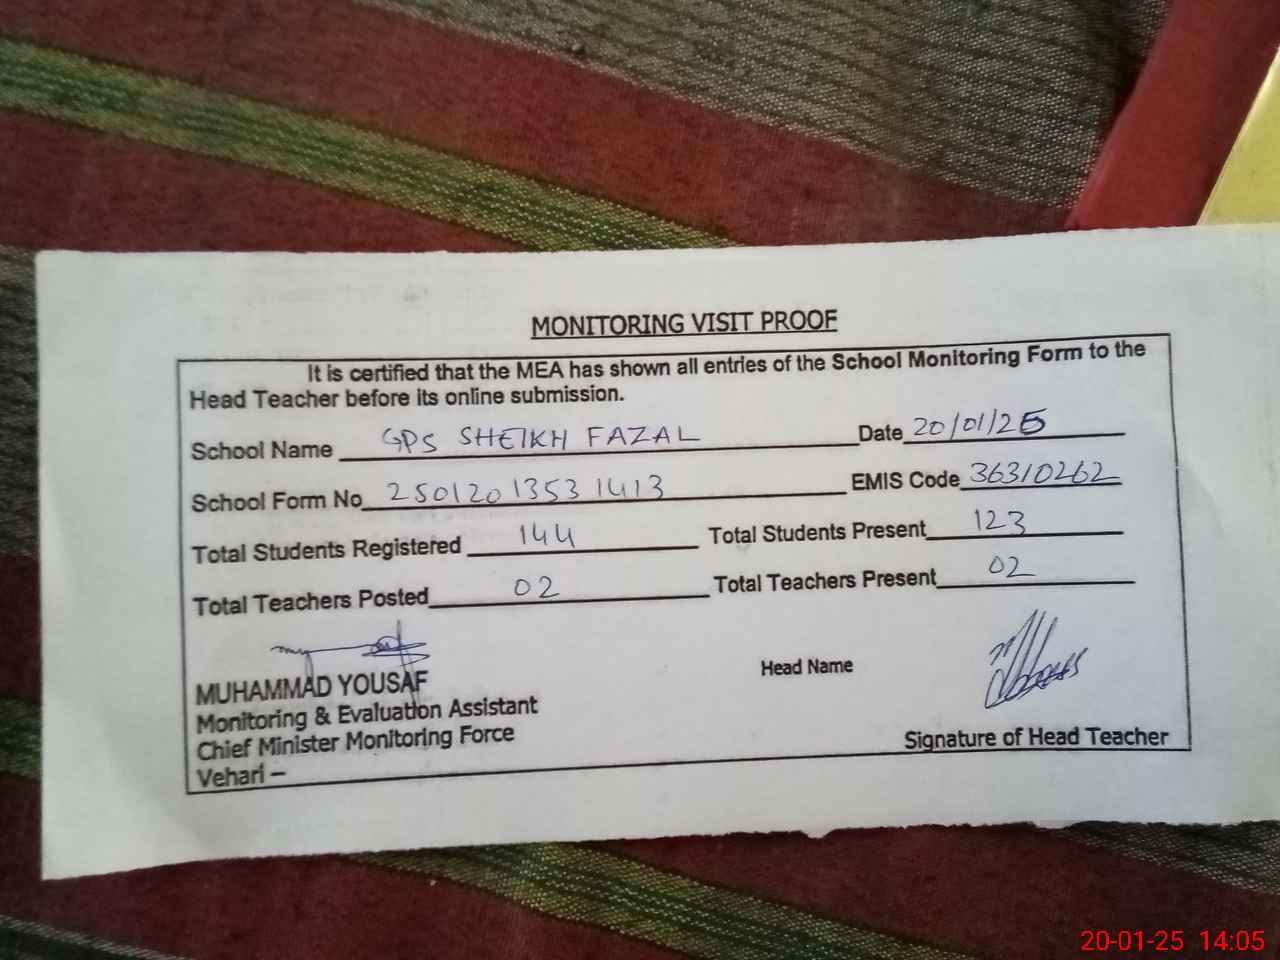 MONITORING VISIT PROOF
It is certified that the MEA has shown all entries of the School Monitoring Form to the
Head Teacher before its online submission.
School Name GPS SHEIKH FAZAL Date 20/01/25
School Form No 2501201353 1413 EMIS Code 36310262
Total Students Registered 144 Total Students Present 123
Total Teachers Posted 02 Total Teachers Present 02
MUHAMMAD YOUSAF Head Name
Monitoring & Evaluation Assistant
Chief Minister Monitoring Force Signature of Head Teacher
Vehari –
20-01-25 14:05